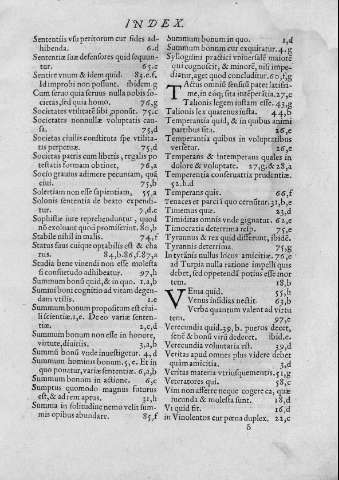 INDEX.
Sententiis vsu peritorum cur fides ad-
hibenda. 6.d
Sententiæ suæ defensores quid sequun-
tur. 65.c
Sentire vnum & idem quid. 82.e.f.
Id improbi non possunt. ibidem g
Cum feruo quia seruus nulla nobis so-
cietas, sed quia homo. 76,g
Societates vtilitatē sibi pponūt. 75.c
Societates nonnullæ voluptatis cau-
sa. 75,d
Societas ciuilis constituta spe vtilita-
tis perpetuæ. 75,d
Societas patris cum libertis, regalis po
testatis formam obtinet, 76,a
Socio grauius adimere pecuniam, quā
ciui. 75,b
Solertiam non esse sapientiam, 55,a
Solonis sententia de beato expendi-
tur. 7,d.e
Sophistæ iure reprehenduntur, quod
nō exoluant quod promiserint. 80,b
Stabile nihil in malis. 74,f
Status suus cuique optabilis est & cha
rus. 84,b.86,f.87,a
Studia bene viuendi non esse molesta
si consuetudo adhibeatur. 97,h
Summum bonū quid, & in quo. 1.a,b
Summi boni cognitio ad vitam degen-
dam vtilis. 1.e
Summum bonum propositum est ciui-
li scientiæ.1,e. De eo variæ senten-
tiæ. 2,c,d
Summum bonum non esse in honore,
virtute, diuitiis. 3,a,b
Summū bonū vnde inuestigetur. 4,d
Summum hominis bonum. 5,e. Et in
quo ponatur, variæ sententiæ. 6,a,b
Summum bonum in actione. 6,c
Sumptus quomodo magnus futurus
est, & ad rem aptus. 31,h
Summa in solitudine nemo velit sum-
mis opibus abundare. 85,f
Summum bonum in quo. 1,d
Summum bonum cur exquiratur. 4.g
Syllogismi practici vniuersalē maiorē
qui cognoscit, & minorē, nisi impe-
diatur, aget quod concluditur. 60,f,g
TActus omniū sensuū patet latissi-
mè, in eóq; sita intēperātia. 27,e
Talionis legem iustam esse. 43,g
Talionis lex quatenus iusta. 44,b
Temperantia quid, & in quibus animi
partibus sita. 26,e
Temperantia quibus in voluptatibus
versetur. 26,e
Temperans & Intemperans quales in
dolore & voluptate. 27,g,& 28,a
Temperantia conseruatrix prudentiæ.
52.h.d
Temperans quis. 66,f
Tenaces et parci à quo cernūtur. 31,b,e
Timemus quæ. 23,d
Timiditas omnis vnde gignatur. 62,e
Timocratia deterrima resp. 75,e
Tyrannus & rex quid differunt, ibidē.
Tyrannis deterrima. 75,g
In tyrānis nullus locus amicitiæ. 76,e
ad Turpia nulla ratione impelli quis
debet, sed oppetendū potius esse mor
tem. 18,b
VEna quid. 55,b
Venus insidias nectit. 63,b
Verba quantum valent ad virtu
tem. 97,e
Verecundia quid. 39, b. pueros decet,
senē & bonū virū dedecet. ibid.e.
Verecundia voluntaria est. 39,d
Veritas apud omnes plus videre debet
quàm amicitia. 3,d
Veritas materia vtriusque mentis. 51,g
Veteratores qui. 58,c
Vim non afferre neque cogere ea, quæ
iucunda & molesta sunt. 18,d
Vi quid fit. 16,d
in Vinolentos cur pœna duplex. 22,c